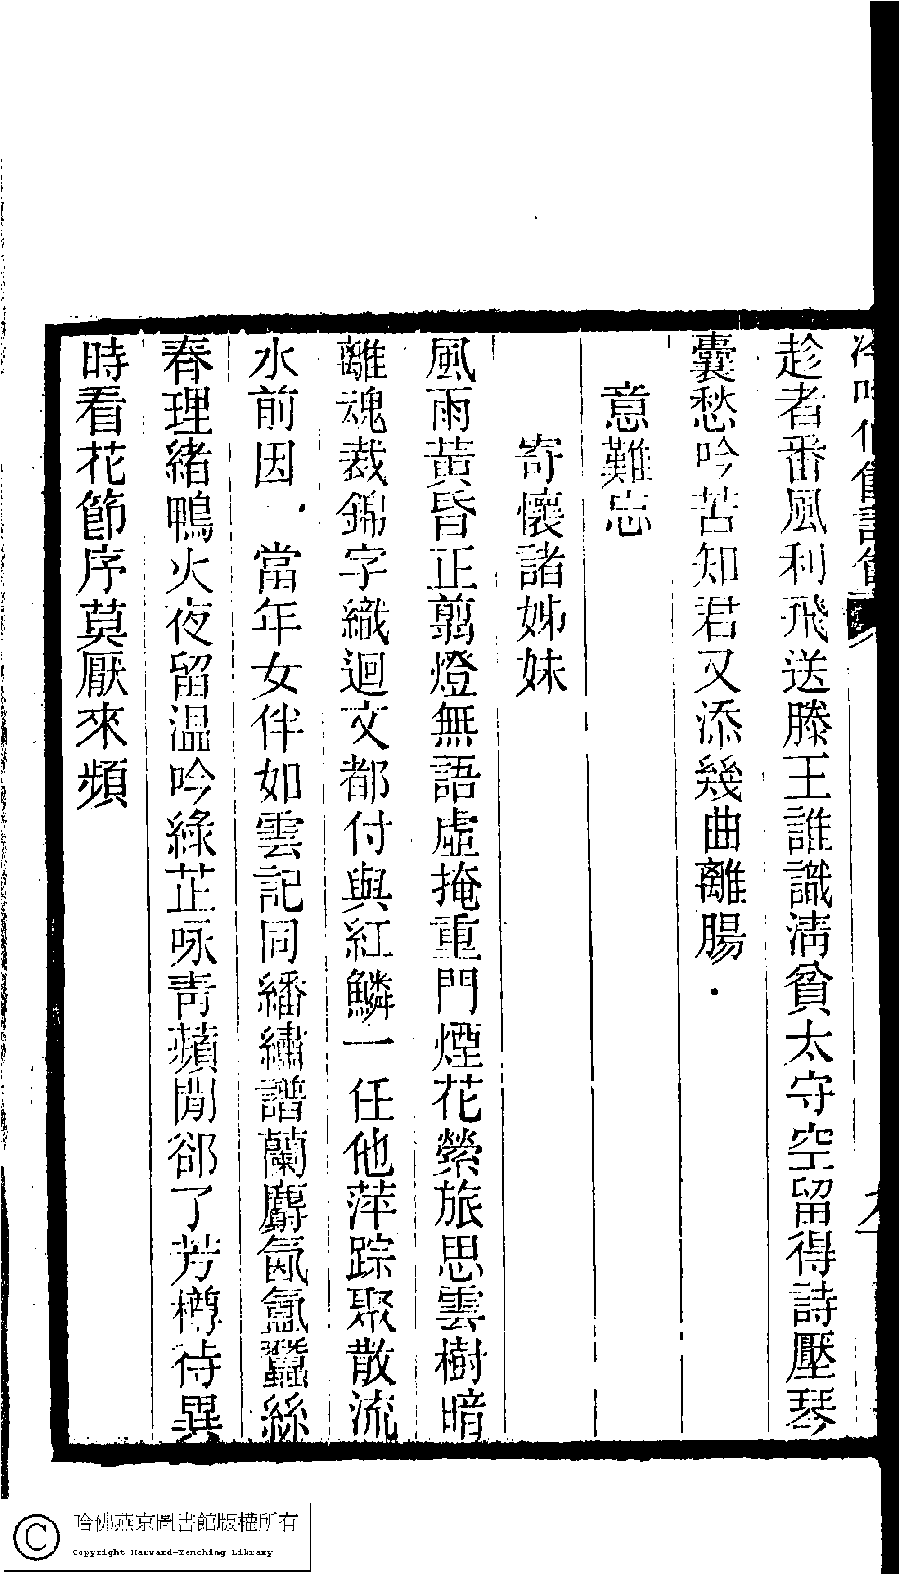 趁者番風利飛送滕王誰識清貧太守空留得詩壓琴
囊愁吟苦知君又添幾曲離腸
意難忘
寄懷諸姊妹
風雨黃昏正剪燈無語虛掩重門煙花縈旅思雲樹暗
離魂裁錦字織迴文都付與紅鱗一任他萍踪聚散流
水前因 當年女伴如雲記同繙繡譜蘭麝氤氳蠶絲
春理緒鴨火夜留溫吟綠芷咏靑蘋閒郤了芳樽待異
時看花節序莫厭來頻
哈佛燕京圖書館版權所有
Copyright Harvard-Yenching Library